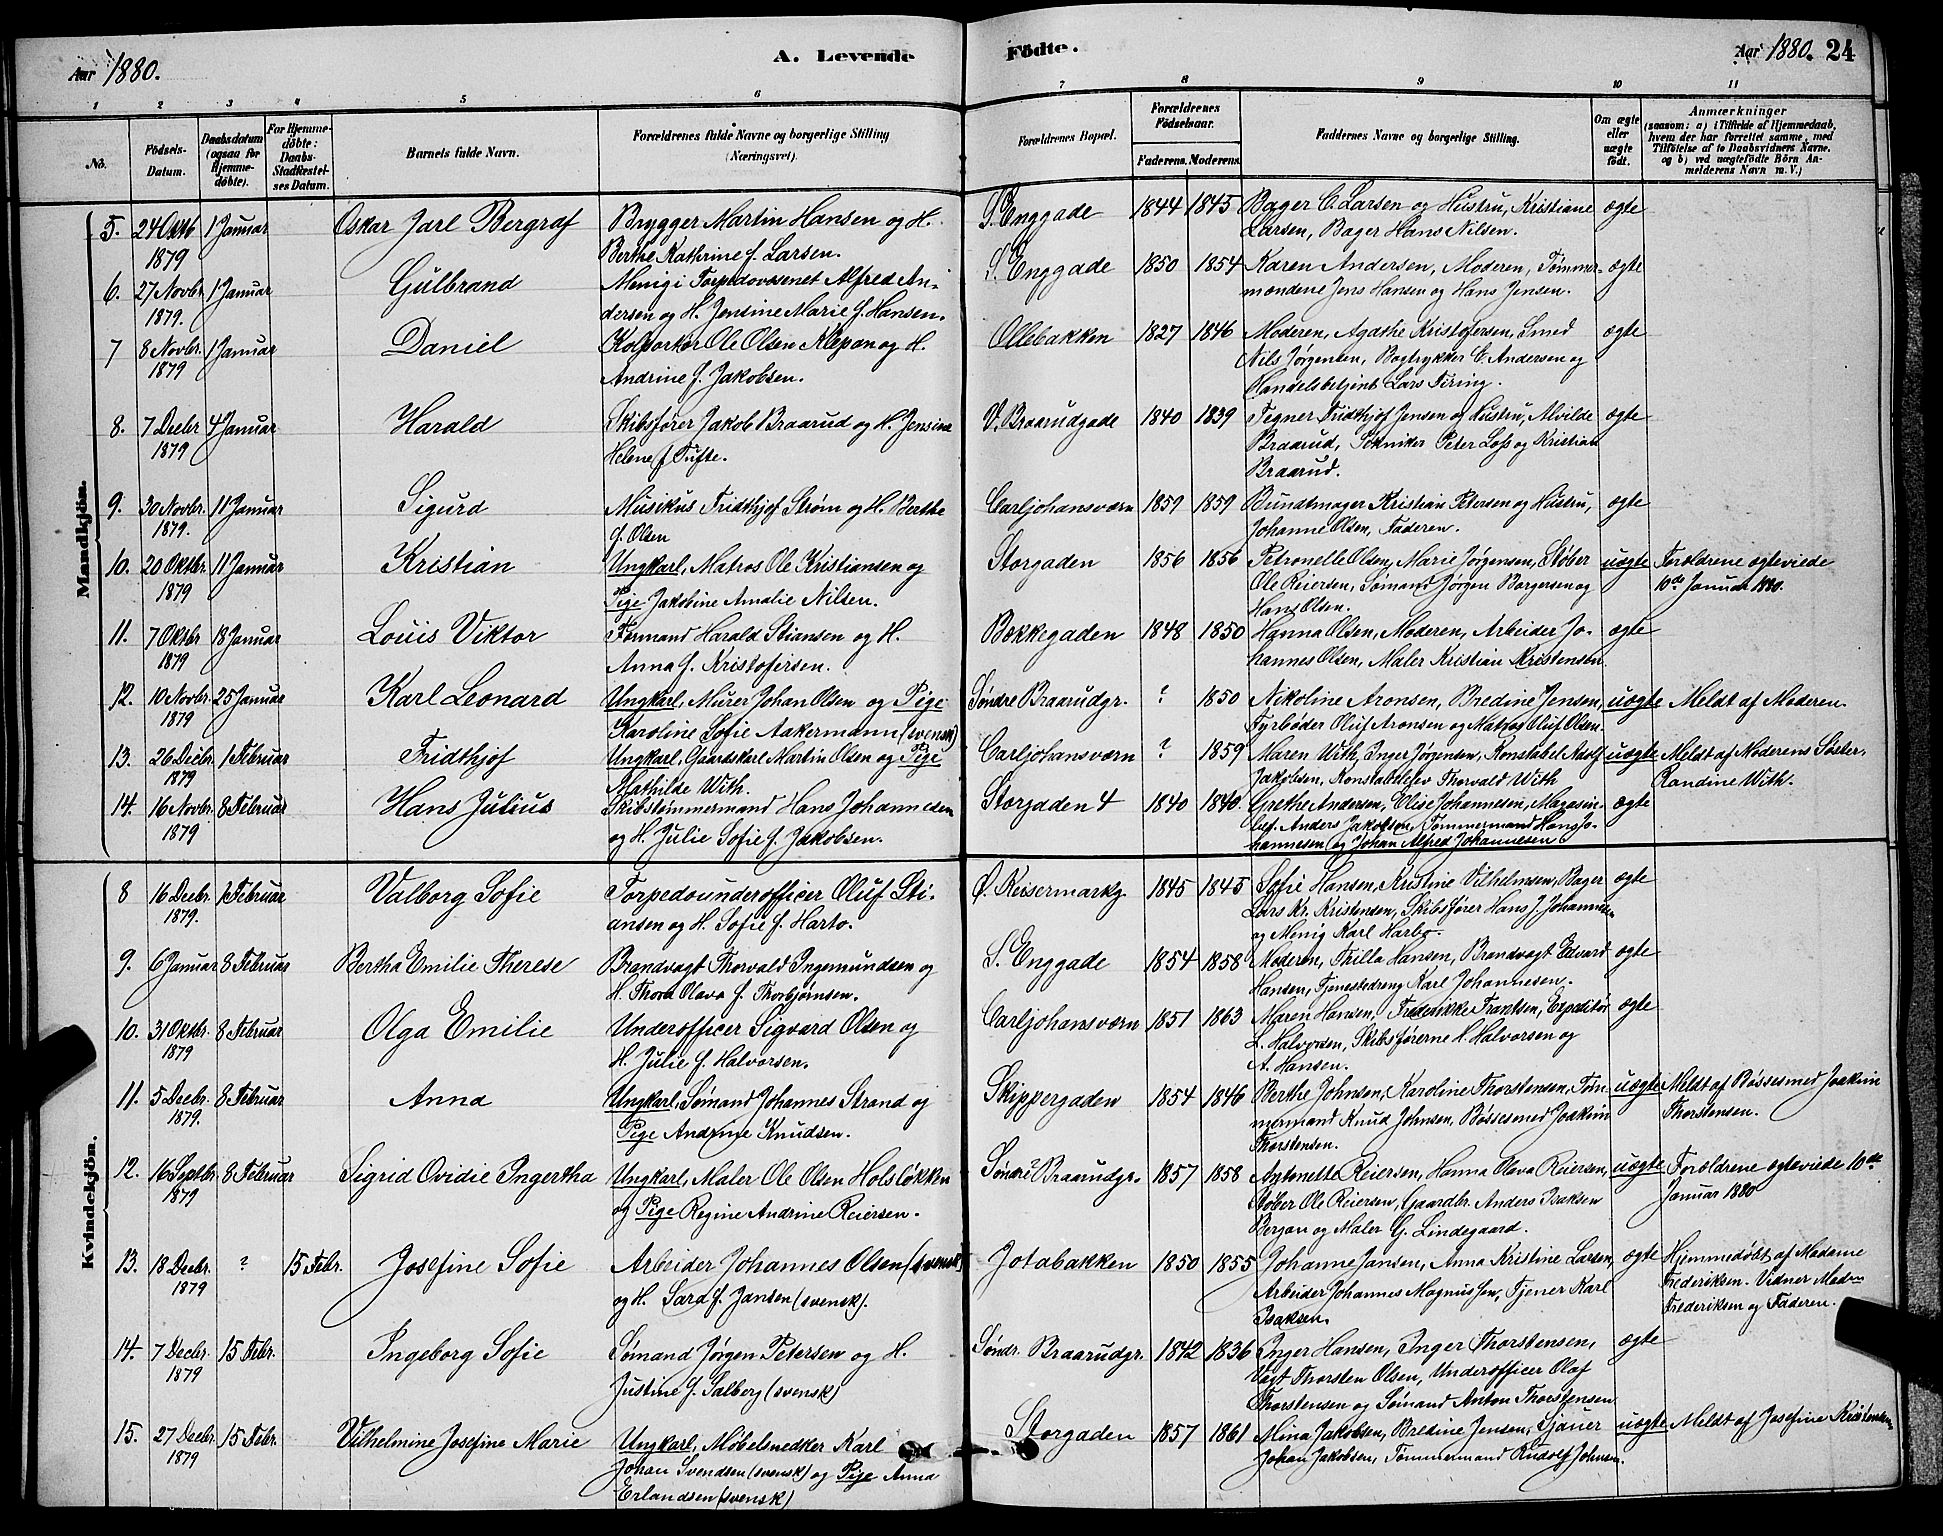 Aar 1880.
A. Levende Födte.
Aar 1880. 24
1 2 3 4 5 6 7 8 9 10 11
No. Födsels-Datum. Daabsdatum (ogsaa for Hjemme-döbte). For Hjemme-döbte: Daabs-Stadfæstel-ses Datum. Barnets fulde Navn. Forældrenes fulde Navne og borgerlige Stilling (Næringsvei). Forældrenes Bopæl. Forældrenes Födselsaar. Faderens. Moderens. Faddernes Navne og borgerlige Stilling. Om ægte eller uægte födt. Anmærkninger (saasom: a) i Tilfælde af Hjemmedaab, hvem der har forrettet samme, med Tilföielse af to Daabsvidners Navne, og b) ved uægtefödte Börn Anmelderens Navn m. V.)
Mandkjön.
5. 24 Oktb 1 Januar Oskar Jarl Bergraf Brygger Martin Hansen og H. S. Enggade 1844 1845 Bager C Larsen og Hustru, Kristiane ægte
1879 Berthe Kathrine f. Larsen. Larsen, Bager Hans Nilsen.
6. 27 Novbr 1 Januar Gulbrand Menig i Torpedovæsenet Alfred An- S. Enggade 1850 1854 Karen Andersen, Moderen, Tømmer- ægte
1879. dersen og H. Jensine Marie f. Hansen. mændene Jens Hansen og Hans Jensen.
7 8 Novbr. 1 Januar Daniel Kolportør Ole Olsen Klepan og H. Ollebakken 1827 1846 Moderen, Agathe Kristofersen, Smed ægte
1879 Andrine f. Jakobsen. Nils Jørgensen, Bogtrykker C. Andersen og
Handelsbetjent Lars Firing.
8. 7 Decbr 4 Januar Harald Skibsfører Jakob Braarud og H. Jensine V. Braarudgade 1840 1839 Tegner Fridthjof Jensen og Hustru, Alvilde ægte
1879 Helene f Tufte. Braarud, Tekniker Peter Loss og Kristian
Braarud.
9. 30 Novbr. 11 Januar Sigurd Musikus Fridthjof Strøm og H. Berthe Carljohansværn 1859 1859 Bundtmager Kristian Petersen og Hustru, ægte
1879. f. Olsen Johanne Olsen, Faderen.
10. 20 Oktbr. 11 Januar Kristian Ungkarl, Matros Ole Kristiansen og Storgaden 1856 1856 Petronelle Olsen, Marie Jørgensen, Støber uægte Forældrene ægteviede
1879 Pige Jakobine Amalie Nilsen. Ole Reiersen, Sømand Jørgen Borgersen og 10de Januar 1880.
Hans Olsen.
11. 7 Oktbr 18 Januar Louis Viktor Formand Harald Stiansen og H. Bækkegaden 1848 1850 Hanna Olsen, Moderen, Arbeider Jo- ægte
1879 Anna f. Kristofersen. hannes Olsen, Maler Kristian Kristensen
12. 10 Novbr. 25 Januar Karl Leonard Ungkarl, Murer Johan Olsen og Pige Søndre Braarudgr. ? 1850 Nikoline Aronsen, Bredine Jensen, uægte Meldt af Moderen.
1879 Karoline Sofie Aakermann (svensk) Fyrbøder Oluf Aronsen og Matros Oluf Olsen.
13. 26 Decbr. 1 Februar Fridthjof Ungkarl, Gaardskarl Martin Olsen og Pige Carljohansværn ? 1859 Maren With, Inger Jørgensen, Konstabel Adolf uægte Meldt af Moderens Søster,
1879 Mathilde With. Jakobsen, Konstabelelev Thorvald With Randine With.
14. 16 Novbr. 8 Februar Hans Julius Skibstømmermand Hans Johannesen Storgaden 4 1840 1840. Grethe Andersen, Elise Johannesen, Magasin- ægte
1879 og H. Julie Sofie f. Jakobsen. bef. Anders Jakobsen, Tømmermand Hans Jo-
hannesen og Johan Alfred Johannesen
Kvindekjön.
8 16 Decbr. 1 Februar Valborg Sofie Torpedounderofficer Oluf Sti- Ø. Keisermarkg 1845 1845 Sofie Hansen, Kristine Vilhelmsen, Bager ægte
1879. ansen og H. Sofie f. Harbo. Lars Kr. Kristensen, Skibsfører Hans J. Johannesen
og Menig Karl Harbo.
9. 6 Januar 8 Februar Bertha Emilie Therese Brandvagt Thorvald Ingemundsen og S. Enggade 1854 1858 Moderen, Thilla Hansen, Brandvagt Edvard ægte
H. Thora Olava f. Thorbjørnsen. Hansen, Tjenestedreng Karl Johannesen.
10. 31 Oktbr. 8 Februar Olga Emilie Underofficer Sigvard Olsen og Carljohansværn 1851 1863 Maren Hansen, Frederikke Frantsen, Expeditør ægte
1879 H. Julie f. Halvorsen. L. Halvorsen, Skibsførerne H. Halvorsen og
A. Hansen.
11. 5 Decbr. 8 Februar Anna Ungkarl, Sømand Johannes Strand og Skippergaden 1854 1846 Berthe Johnsen, Karoline Thorstensen, Tøm- uægte Meldt af Bøssesmed Joakim
1879. Pige Andrine Knudsen. mermand Knud Johnsen, Bøssesmed Joakim Thorstensen.
Thorstensen.
12. 16 Septbr 8 Februar Sigrid Ovidie Ingertha Ungkarl, Maler Ole Olsen Holsløkken Søndre Braarudgr. 1857 1858 Antonette Reiersen, Hanna Olava Reiersen, uægte Forældrene ægteviede 10de
1879 og Pige Regine Andrine Reiersen. Støber Ole Reiersen, Gaardbr. Anders Isaksen Januar 1880
Bergan og Maler G. Lindegaard.
13. 18 Decbr. ? 15 Febr. Josefine Sofie Arbeider Johannes Olsen (svensk) Jotabakken 1850 1855 Johanne Jansen, Anna Kristine Larsen, ægte Hjemmedøbt af Madame
1879 og H. Sara f. Jansen (svensk). Arbeider Johannes Magnussen, Tjener Karl Frederiksen. Vidner Madm
Isaksen. Frederiksen og Faderen.
14. 7 Decbr. 15 Febr. Ingeborg Sofie Sømand Jørgen Petersen og H. Søndr. Braarudgr. 1842 1836 Inger Hansen, Inger Thorstensen, ægte
1879 Justine f. Salberg (svensk) Vagt Thorsten Olsen, Underofficer Olaf
Thorstensen og Sømand Anton Thorstensen
15. 27 Decbr. 15 Febr. Vilhelmine Josefine Marie Ungkarl, Møbelsnedker Karl Storgaden 1857 1861 Mina Jakobsen, Bredine Jensen, Sjauer uægte Meldt af Josefine Kristensen
1879 Johan Svendsen (svensk) og Pige Anna Johan Jakobsen, Tømmermand Rudolf Johnsen.
Erlandsen (svensk)